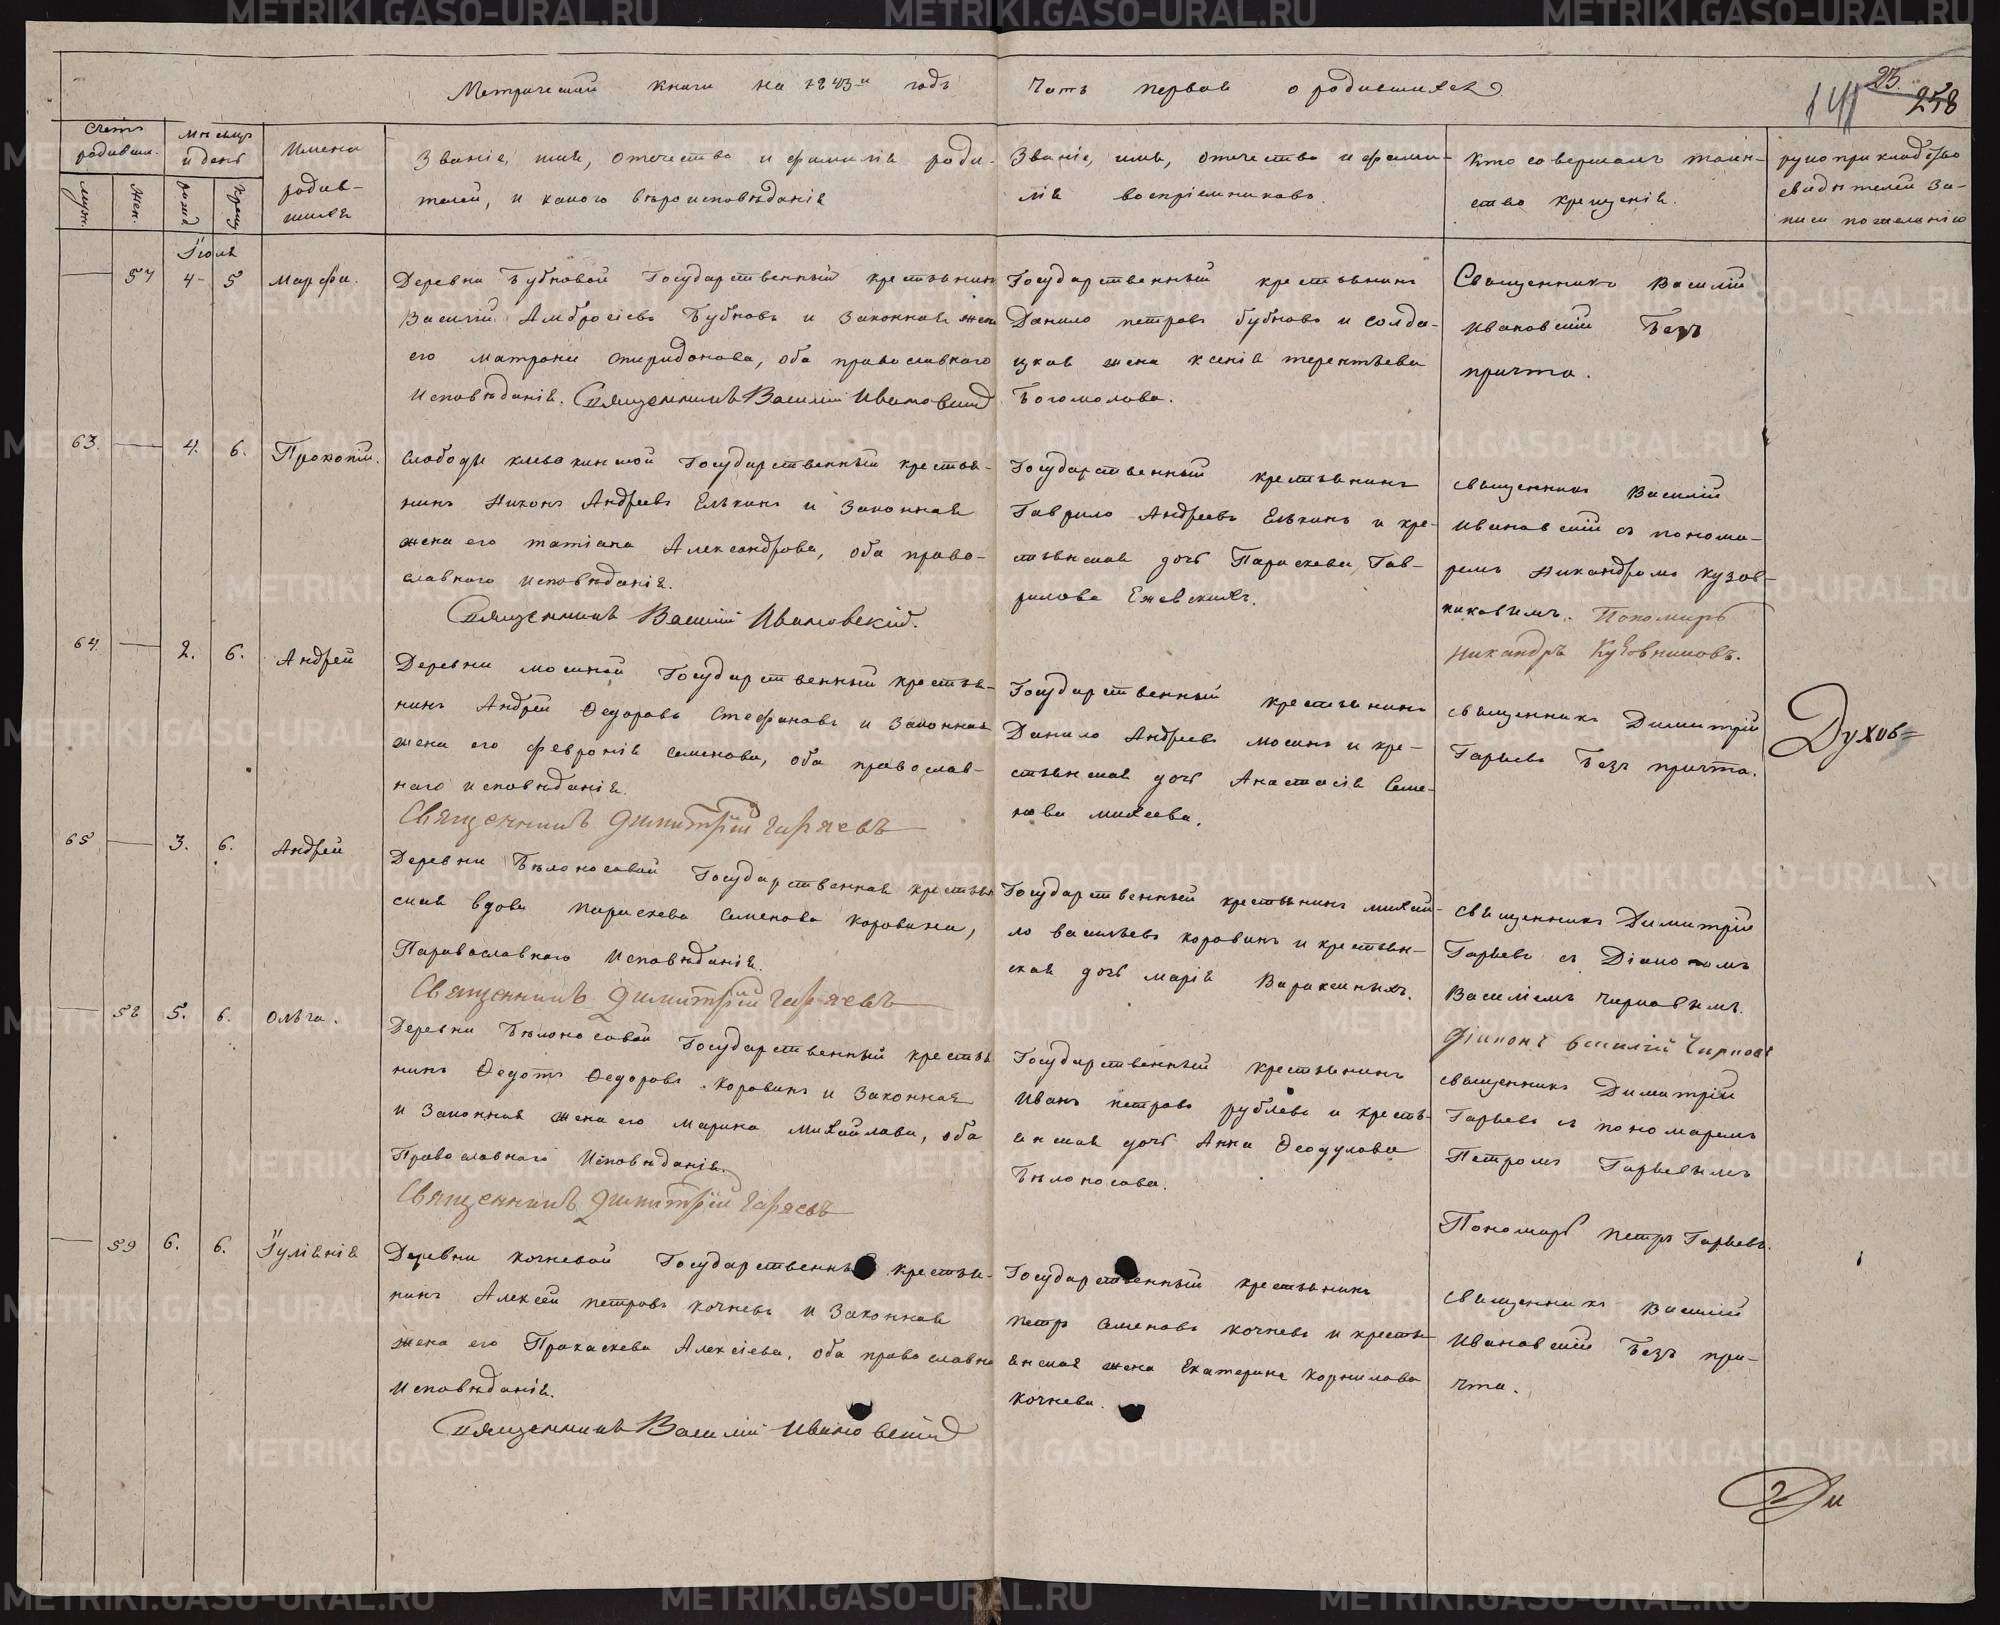 Метрической книги на 1843-й годъ
Часть первая о родившихся
23.
258
Счетъ родивших.
Муж.
Жен.
Мѣсяцъ и день
рожд
крещ
Имена родив-
шихся
Званіе, имя, отечество и фамилія роди-
телей, и какого вѣроисповѣданія
Званіе, имя, отечество и фами-
лія воспріемниковъ.
Кто совершалъ таин-
ство крещенія.
рукоприкладство
свидѣтелей за-
писи по желанію
Іюля
57 4 5 Марфа.
Деревни Бубновой Государственный крестьянинъ
Василій Амбросіевъ Бубновъ и законная жена
его Матрона Спиридонова, оба православнаго
исповѣданія. Священникъ Василій Ивановскій
Государственный крестьянинъ
Данило Петровъ Бубновъ и солда-
цкая жена Ксенія Терентьева
Богомолова.
Священникъ Василій
Ивановскій безъ
причта.
63. 4. 6. Прокопій.
Слободы Клевакинской Государственный крестья-
нинъ Никонъ Андреевъ Елькинъ и законная
жена его Татіана Александрова, оба право-
славнаго исповѣданія.
Священникъ Василій Ивановскій.
Государственный крестьянинъ
Гаврило Андреевъ Елькинъ и кре-
стьянская дочь Параскева Гав-
рилова Ежевскихъ.
священникъ Василій
Ивановскій съ понома-
ремъ Никандромъ Кузов-
никовымъ. Пономарь
Никандръ Кузовниковъ.
64. 2. 6. Андрей
Деревни Мосиной Государственный крестья-
нинъ Андрей Федоровъ Стефановъ и законная
жена его Февронія Семенова, оба православ-
наго исповѣданія.
Священникъ Димитрій Гаряевъ
Государственный крестьянинъ
Данило Андреевъ Мосинъ и кре-
стьянская дочь Анастасія Семе-
нова Михеева.
священникъ Димитрій
Гаряевъ безъ причта.
Духов=
65 3. 6. Андрей
Деревни Бѣлоносовой Государственная крестьян
ская вдова Параскева Семенова Коровина,
Паравославнаго исповѣданія.
Священникъ Димитрій Гаряевъ
Государственный крестьянинъ Михай-
ло Васильевъ Коровинъ и крестьян-
ская дочь Марія Вараксиныхъ.
священникъ Димитрій
Гаряевъ съ Діакономъ
Василіемъ Чирковымъ.
Діаконъ Василій Чирковъ
58 5. 6. Ольга.
Деревни Бѣлоносовой Государственный крестья
нинъ Федотъ Федоровъ Коровинъ и законная
и законная жена его Марина Михайлова, оба
Православнаго исповѣданія.
Священникъ Димитрій Гаряевъ
Государственный крестьянинъ
Иванъ Петровъ Рублевъ и кресть-
янская дочь Анна Феодулова
Бѣлоносова.
священникъ Димитрій
Гаряевъ съ пономаремъ
Петромъ Гаряевымъ
Пономарь Петръ Гаряевъ.
59 6. 6. Іуліанія
Деревни Кочневой Государственный крестья-
нинъ Алексей Петровъ Кочневъ и законная
жена его Пракаскева Алексіева, оба православна
исповѣданія.
Священникъ Василій Ивановскій
Государственный крестьянинъ
Петръ Семеновъ Кочневъ и кресть-
янская жена Екатерина Корнилова
Кочнева.
священникъ Василій
Ивановскій безъ при-
чта.
Ди